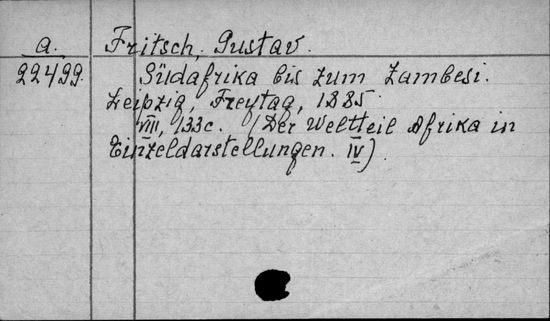 a. Fritsch, Gustav.
22499. Südafrika bis zum Zambesi.
Leipzig, Freytag, 1885
VIII, 133c. (Der Weltteil Afrika in
Einzeldarstellungen. IV)